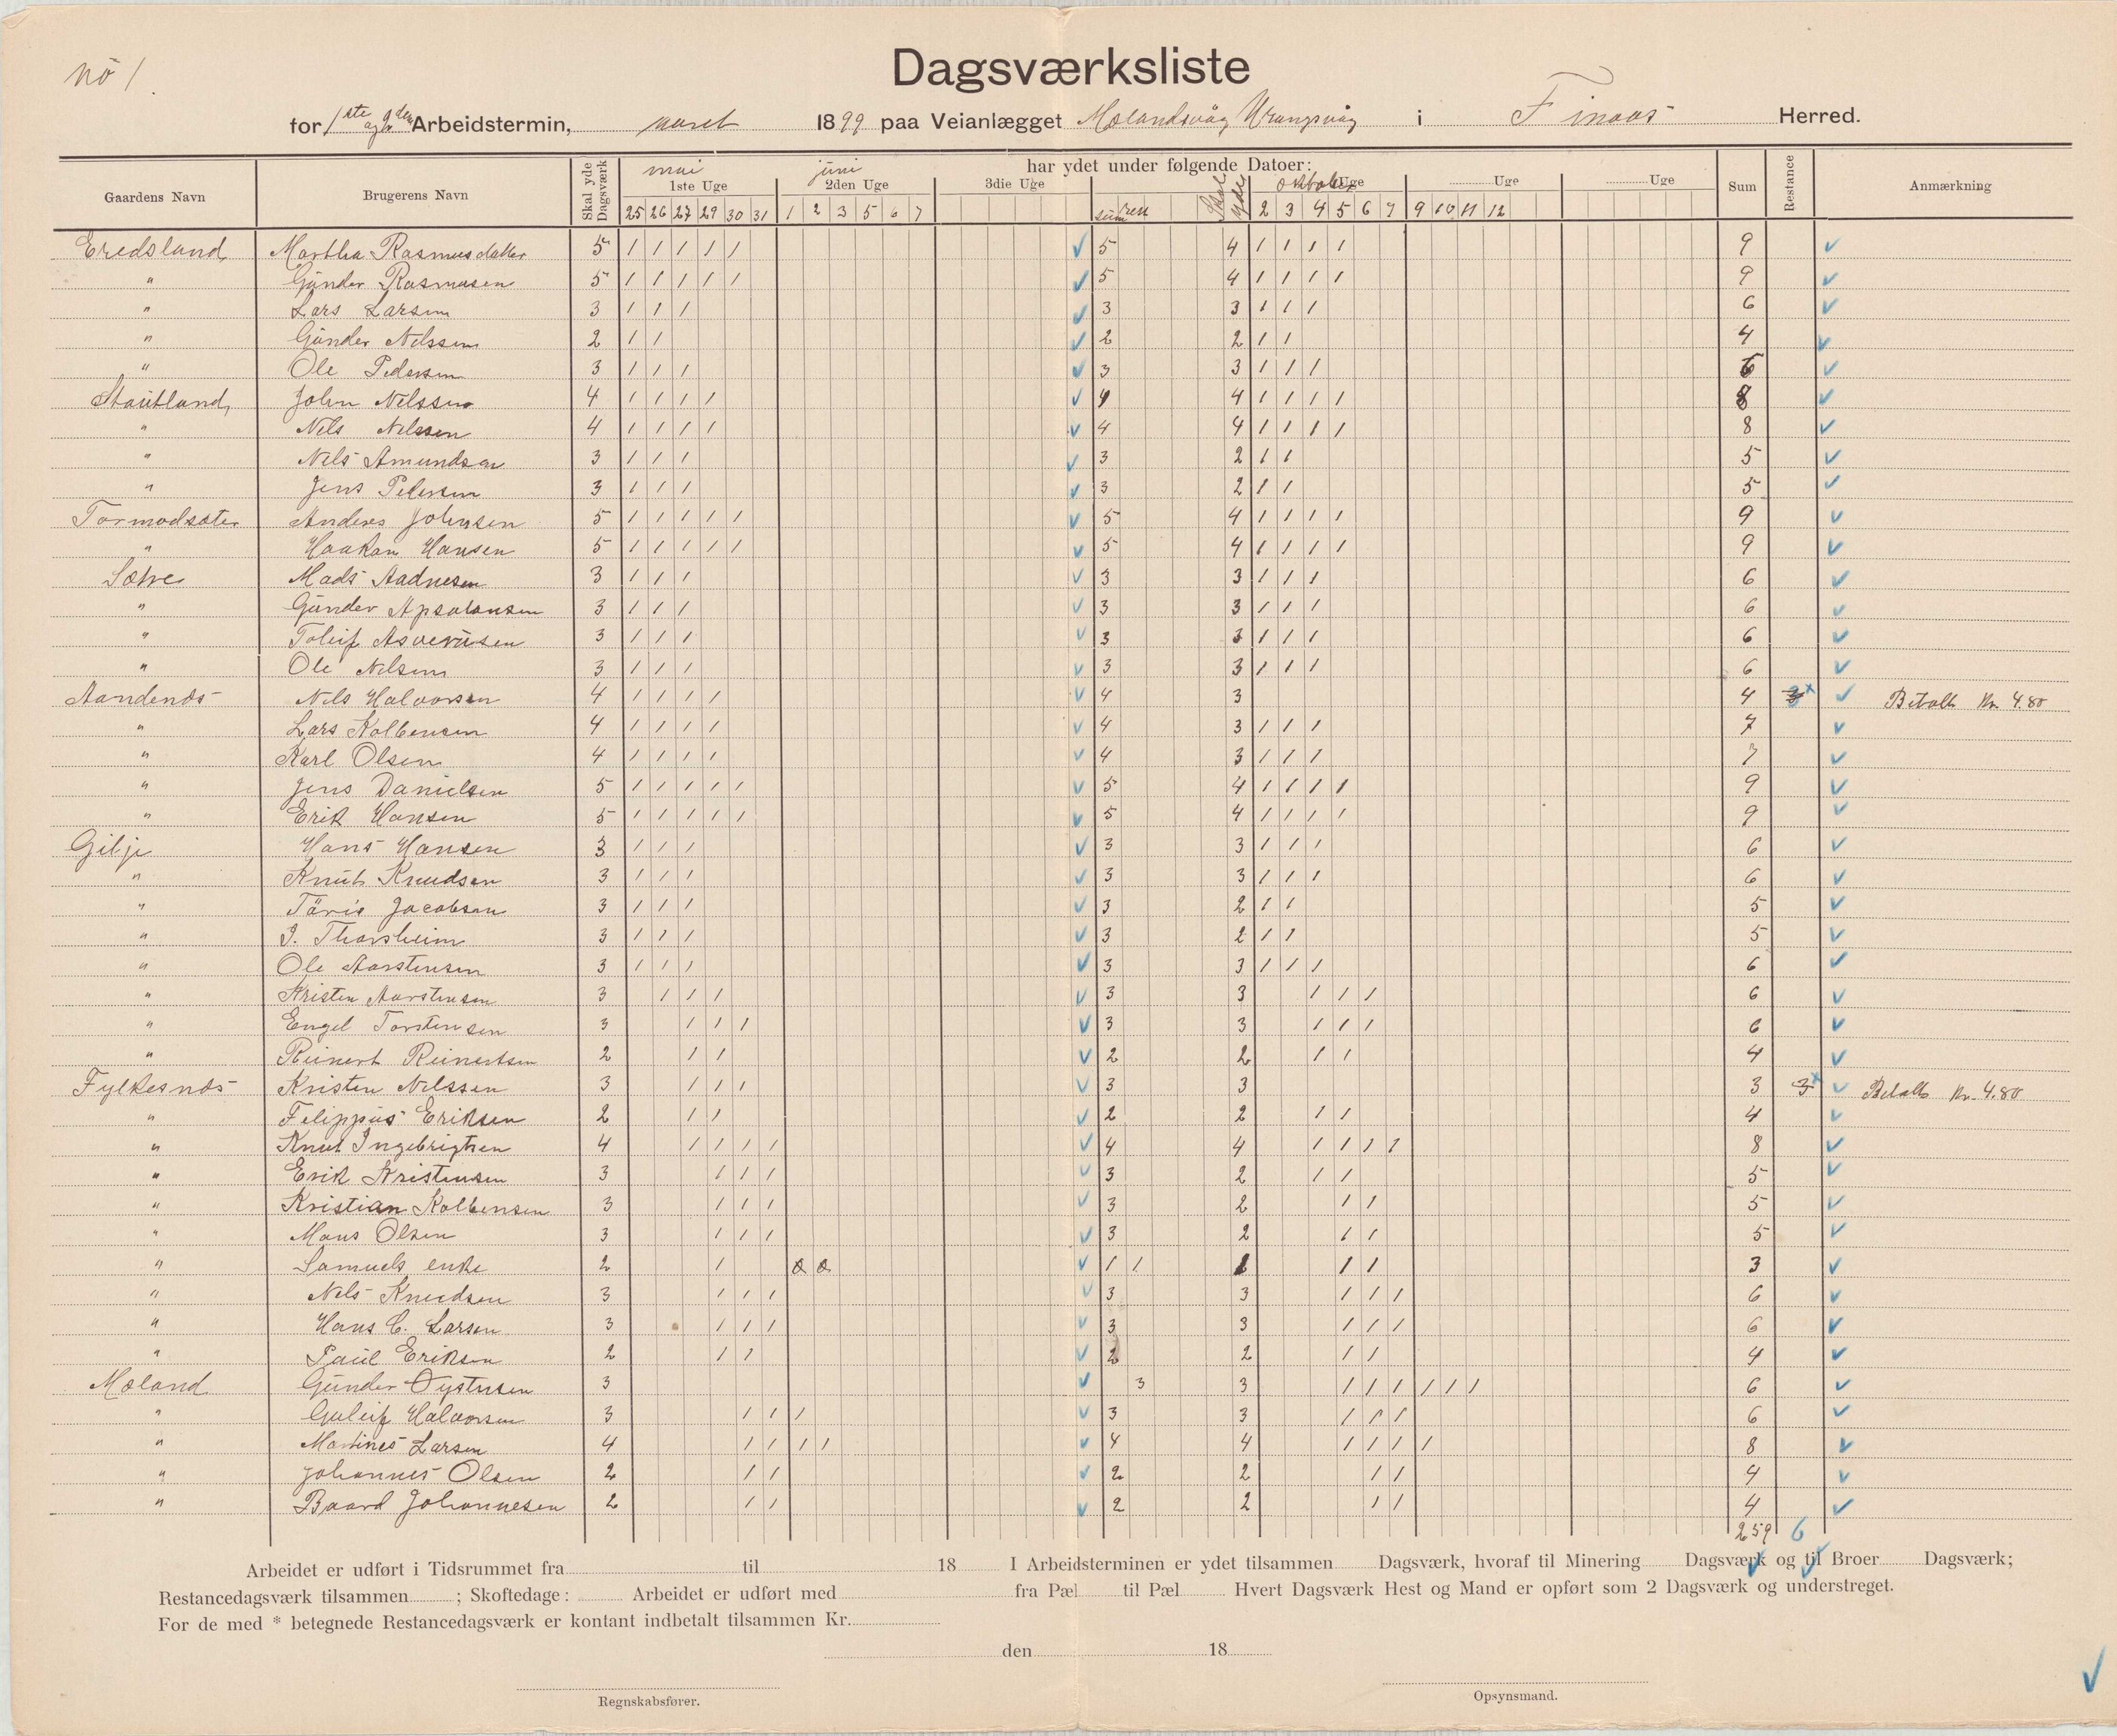 nō 1.
Dagsværksliste
for 1ste og 2den Arbeidstermin, aaret 1899 paa Veianlægget Mælandsvåg Vrangsvåg i Finaas Herred.
Gaardens Navn Brugerens Navn Skal yde Dagsværk har ydet under følgende Datoer: Sum Restance Anmærkning
mai 1ste Uge juni 2den Uge 3die Uge sum rest Skal yde oktober Uge Uge Uge
25 26 27 29 30 31 1 2 3 5 6 7 2 3 4 5 6 7 9 10 11 12
Eredsland Martha Rasmusdatter 5 / / / / / 5 4 / / / / 9
" Gunder Rasmusen 5 / / / / / 5 4 / / / / 9
" Lars Larsen 3 / / / 3 3 / / / 6
" Gunder Nelssen 2 / / 2 2 / / 4
" Ole Pedersen 3 / / / 3 3 / / / 6
Stautland John Nelssen 4 / / / / 4 4 / / / / 8
" Nels Nelssen 4 / / / / 4 4 / / / / 8
" Nels Amundsen 3 / / / 3 2 / / 5
" Jens Petersen 3 / / / 3 2 / / 5
Tormodsæter Anders Johnsen 5 / / / / / 5 4 / / / / 9
" Haakon Hansen 5 / / / / / 5 4 / / / / 9
Sætre Mads Aadnesen 3 / / / 3 3 / / / 6
" Gunder Apsalonsen 3 / / / 3 3 / / / 6
" Toleif Asverusen 3 / / / 3 3 / / / 6
" Ole Nelsen 3 / / / 3 3 / / / 6
Aandenes Nels Halvorsen 4 / / / / 4 3 4 3 x Betalt Kr. 4.80
" Lars Kolbensen 4 / / / / 4 3 / / / 7
" Karl Olsen 4 / / / / 4 3 / / / 7
" Jens Danielsen 5 / / / / / 5 4 / / / / 9
" Erik Hansen 5 / / / / / 5 4 / / / / 9
Gilje Hans Hansen 3 / / / 3 3 / / / 6
" Knut Knudsen 3 / / / 3 3 / / / 6
" Jacobsen 3 / / / 3 2 / / 5
" I. Thorsheim 3 / / / 3 2 / / 5
" Ole Aarstensen 3 / / / 3 3 / / / 6
" Kristen Aarstensen 3 / / / 3 3 / / / 6
" Engel Torstensen 3 / / / 3 3 / / / 6
" Reinert Reinertsen 2 / / 2 2 / / 4
Fylkesnæs Kristen Nelssen 3 / / / 3 3 3 3 x Betalt Kr. 4.80
" Filippus Eriksen 2 / / 2 2 / / 4
" Knut Ingebrigtsen 4 / / / / 4 4 / / / / 8
" Erik Kristensen 3 / / / 3 2 / / 5
" Kristian Kolbensen 3 / / / 3 2 / / 5
" Mons Olsen 3 / / / 3 2 / / 5
" Samuels enke 2 / 1 1 / / 3
" Nels Knudsen 3 / / / 3 3 / / / 6
" Hans C. Larsen 3 / / / 3 3 / / / 6
" Paul Eriksen 2 / / 2 2 / / 4
Mæland Gunder Øystesen 3 3 3 / / / / / / 6
" Guleif Halvorsen 3 / / / 3 3 / / / 6
" Martines Larsen 4 / / / / 4 4 / / / / 8
" Johannes Olsen 2 / / 2 2 / / 4
" Baard Johannesen 2 / / 2 2 / / 4
259 6
Arbeidet er udført i Tidsrummet fra til 18 I Arbeidsterminen er ydet tilsammen Dagsværk, hvoraf til Minering Dagsværk og til Broer Dagsværk;
Restancedagsværk tilsammen ; Skoftedage: Arbeidet er udført med fra Pæl til Pæl Hvert Dagsværk Hest og Mand er opført som 2 Dagsværk og understreget.
For de med * betegnede Restancedagsværk er kontant indbetalt tilsammen Kr.
den 18
Regnskabsfører. Opsynsmand.